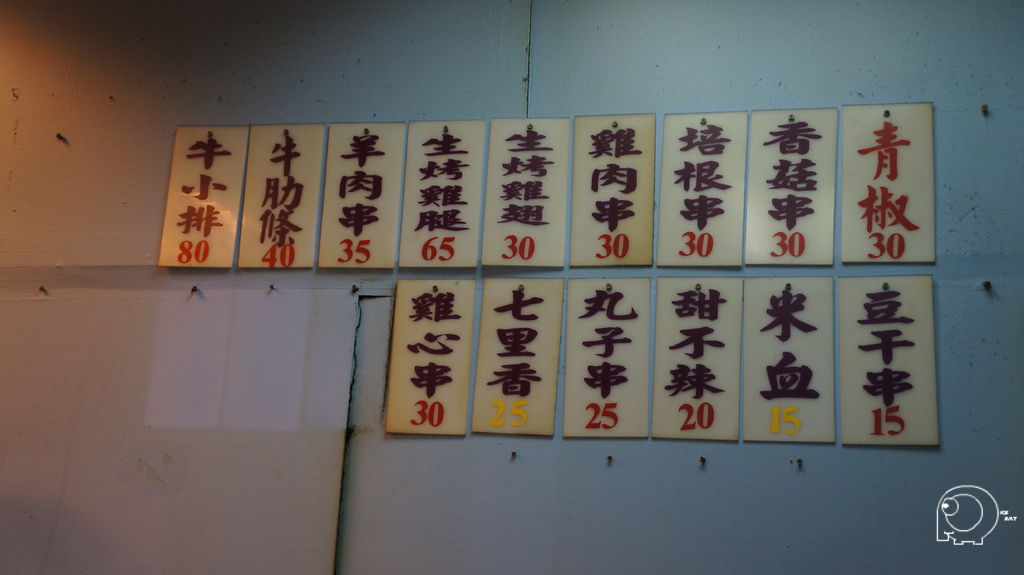 牛小排
80
牛肋條
40
羊肉串
35
生烤雞腿
65
生烤雞翅
30
雞肉串
30
培根串
30
香菇串
30
青椒
30
雞心串
30
七里香
25
丸子串
25
甜不辣
20
米血
15
豆干串
15
ICE
EAT